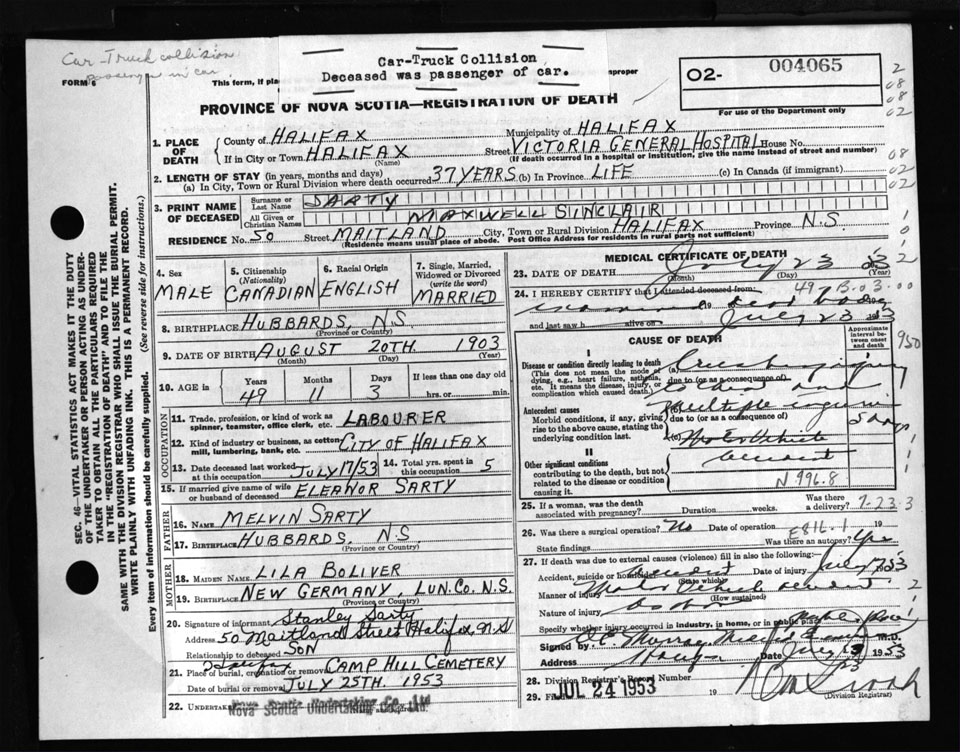 Car-Truck collision
passenger in car.
Car-Truck Collision
Deceased was passenger of car.
FORM 6
This form, if pla
mproper
O2-
004065
For use of the Department only
2
08
08
02
08
02
PROVINCE OF NOVA SCOTIA—REGISTRATION OF DEATH
1. PLACE OF DEATH
County of HALIFAX
Municipality of HALIFAX
If in City or Town HALIFAX
(Name)
Street VICTORIA GENERAL HOSPITAL House No.
(If death occurred in a hospital or institution, give the name instead of street and number)
2. LENGTH OF STAY (in years, months and days)
(a) In City, Town or Rural Division where death occurred 37 YEARS (b) In Province LIFE (c) In Canada (if immigrant)
3. PRINT NAME OF DECEASED
Surname or Last Name SARTY
All Given or Christian Names MAXWELL SINCLAIR
RESIDENCE No. 50 Street MAITLAND City, Town or Rural Division HALIFAX Province N.S.
(Residence means usual place of abode. Post Office Address for residents in rural parts not sufficient)
4. Sex
MALE
5. Citizenship (Nationality)
CANADIAN
6. Racial Origin
ENGLISH
7. Single, Married, Widowed or Divorced (write the word)
MARRIED
8. BIRTHPLACE HUBBARDS, N.S.
(Province or Country)
9. DATE OF BIRTH AUGUST 20TH. 1903
(Month) (Day) (Year)
10. AGE in
Years Months Days If less than one day old
49 11 3 hrs. or min.
OCCUPATION
11. Trade, profession, or kind of work as spinner, teamster, office clerk, etc. LABOURER
12. Kind of industry or business, as cotton mill, lumbering, bank, etc. CITY OF HALIFAX
13. Date deceased last worked at this occupation JULY 17/53
14. Total yrs. spent in this occupation 5
15. If married give name of wife or husband of deceased ELEANOR SARTY
FATHER
16. NAME MELVIN SARTY
17. BIRTHPLACE HUBBARDS, N.S
(Province or Country)
MOTHER
18. MAIDEN NAME LILA BOLIVER
19. BIRTHPLACE NEW GERMANY, LUN. CO. N.S.
(Province or Country)
20. Signature of informant Stanley Sarty
Address 50 Maitland Street Halifax, N.S
Relationship to deceased SON
Halifax
21. Place of burial, cremation or removal CAMP HILL CEMETERY
Date of burial or removal JULY 25TH. 1953
22. UNDERTAKER Nova Scotia Undertaking Co. Ltd
MEDICAL CERTIFICATE OF DEATH
23. DATE OF DEATH July 23 53
(Month) (Day) (Year)
24. I HEREBY CERTIFY that I attended deceased from:
497 B.03.00
examined dead body
and last saw h alive on July 23 1953
CAUSE OF DEATH
Approximate interval between onset and death
950
I
Disease or condition directly leading to death
(This does not mean the mode of dying, e.g., heart failure, asthenia, etc. It means the disease, injury, or complication which caused death.)
(a)
due to (or as a consequence of)
Antecedent causes
Morbid conditions, if any, giving rise to the above cause, stating the underlying condition last.
Multiple injuries
due to (or as a consequence of)
5 days
(c) Motor Vehicle
accident
II
Other significant conditions contributing to the death, but not related to the disease or condition causing it.
N 996.8
25. If a woman, was the death associated with pregnancy? Duration weeks. Was there a delivery?
7-23-3
26. Was there a surgical operation? No Date of operation 19
E816.1
State findings Was there an autopsy? Yes
27. If death was due to external causes (violence) fill in also the following:
Accident, suicide or homicide accident Date of injury July 1953
(State which)
Manner of injury Motor Vehicle accident 2
(How sustained)
Nature of injury as above
Specify whether injury occurred in industry, in home, or in public place
Signed by Murray M.D.
Address Halifax Date July 23 1953
28. Division Registrar's Record Number
29. Filed JUL 24 1953 19
(Division Registrar)
SEC. 46—VITAL STATISTICS ACT MAKES IT THE DUTY
OF THE UNDERTAKER OR PERSON ACTING AS UNDER-
TAKER TO OBTAIN ALL THE PARTICULARS REQUIRED
IN THE "REGISTRATION OF DEATH" AND TO FILE THE
SAME WITH THE DIVISION REGISTRAR WHO SHALL ISSUE THE BURIAL PERMIT.
WRITE PLAINLY WITH UNFADING INK. THIS IS A PERMANENT RECORD.
Every item of information should be carefully supplied. (See reverse side for instructions.)